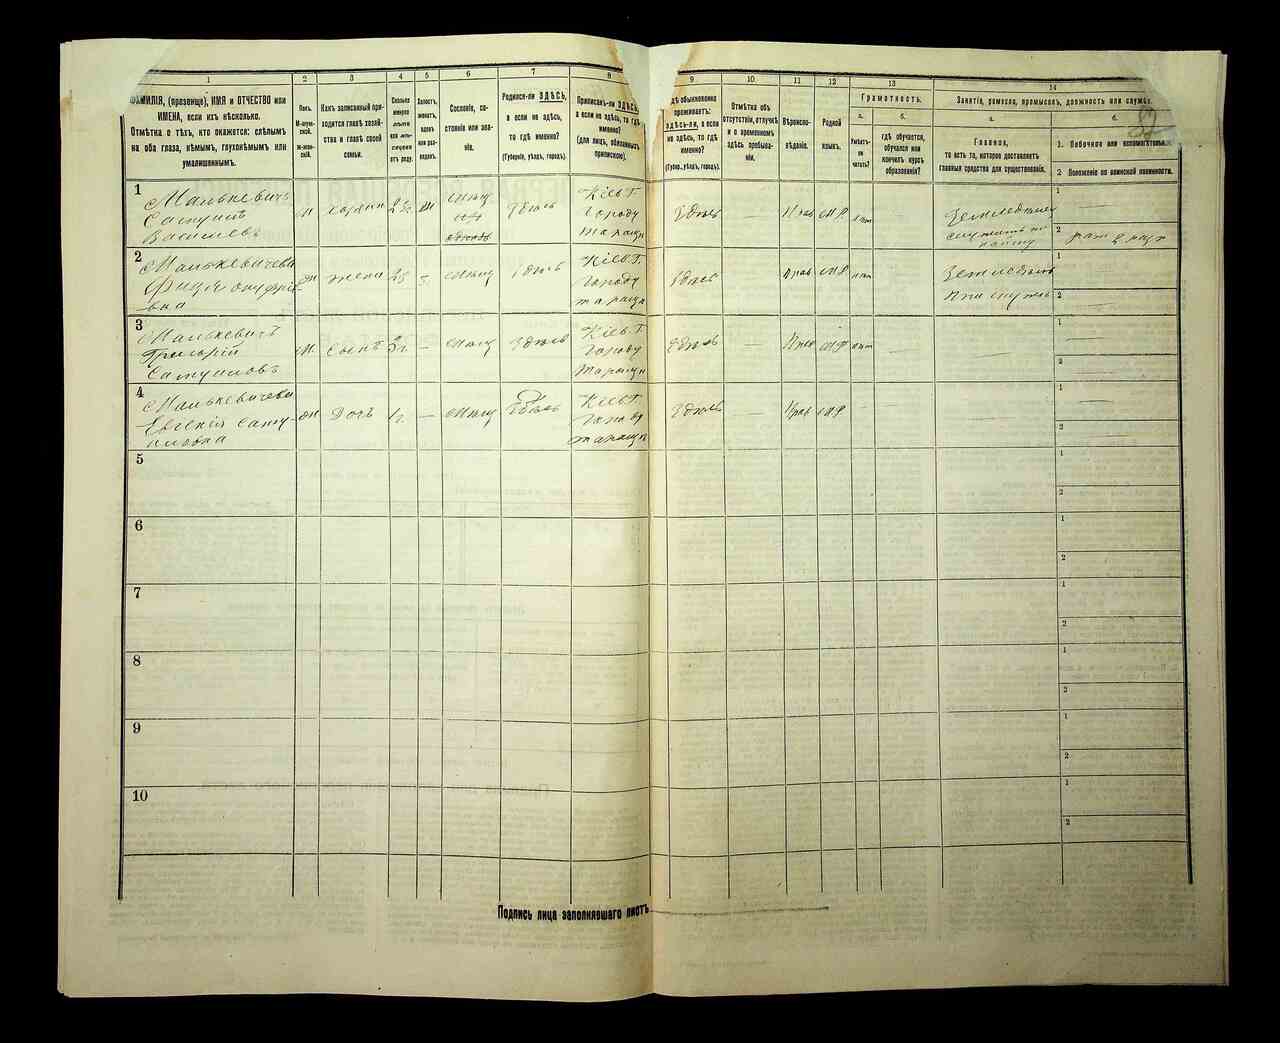 1
2
3
4
5
6
7
8
9
10
11
12
13
14
ФАМИЛІЯ, (прозвище), ИМЯ и ОТЧЕСТВО или
ИМЕНА, если ихъ нѣсколько.
Отмѣтка о тѣхъ, кто окажется: слѣпымъ
на оба глаза, нѣмымъ, глухонѣмымъ или
умалишеннымъ.
Полъ.
М-мужской.
Ж-женскій.
Какъ записанный при-
ходится главѣ хозяй-
ства и главѣ своей
семьи.
Сколько
минуло
лѣтъ
или мѣ-
сяцевъ
отъ роду.
Холостъ,
женатъ,
вдовъ
или раз-
веденъ.
Сословіе, со-
стояніе или зва-
ніе.
Родился-ли ЗДѢСЬ,
а если не здѣсь,
то гдѣ именно?
(Губернія, уѣздъ, городъ).
Приписанъ-ли ЗДѢСЬ,
а если не здѣсь, то гдѣ
именно?
(для лицъ, обязанныхъ
припискою).
гдѣ обыкновенно
проживаетъ:
здѣсь-ли, а если
не здѣсь, то гдѣ
именно?
(Губер., уѣздъ, городъ).
Отмѣтка объ
отсутствіи, отлучкѣ
и о временномъ
здѣсь пребыва-
ніи.
Вѣроиспо-
вѣданіе.
Родной
языкъ.
Грамотность.
а.
Умѣетъ-
ли
читать?
б.
гдѣ обучается,
обучался или
кончилъ курсъ
образованія?
Занятія, ремесло, промыселъ, должность или служба.
а.
Главное,
то есть то, которое доставляетъ
главныя средства для существованія.
б.
1. Побочное или вспомогательное.
2 Положеніе по воинской повинности.
1
Малькевичъ
Самуилъ
Васильевъ
м
хозяин
Здѣсь
Кіев. Г.
Городу
Таращи
Здѣсь
—
Прав
М.Р.
1
2
2
Малькевичева
ж
жена
25
Здѣсь
Кіев Г.
Городу
таращи
Здѣсь
—
Прав
МР
1
2
3
Малькевичъ
Григорій
Самуиловъ
м.
Сынъ
3 г.
—
Здѣсь
Кіев. Г.
Городу
Таращи
Здѣсь
—
Прав
МР
1
2
4
Малькевичева
Евгенія Саму
иловна
ж
Дочь
1 г.
—
Здѣсь
Кіев Г.
Городу
таращи
Здѣсь
—
Прав
МР
1
2
5
1
2
6
1
2
7
1
2
8
1
2
9
1
2
10
1
2
Подпись лица заполнявшаго листъ